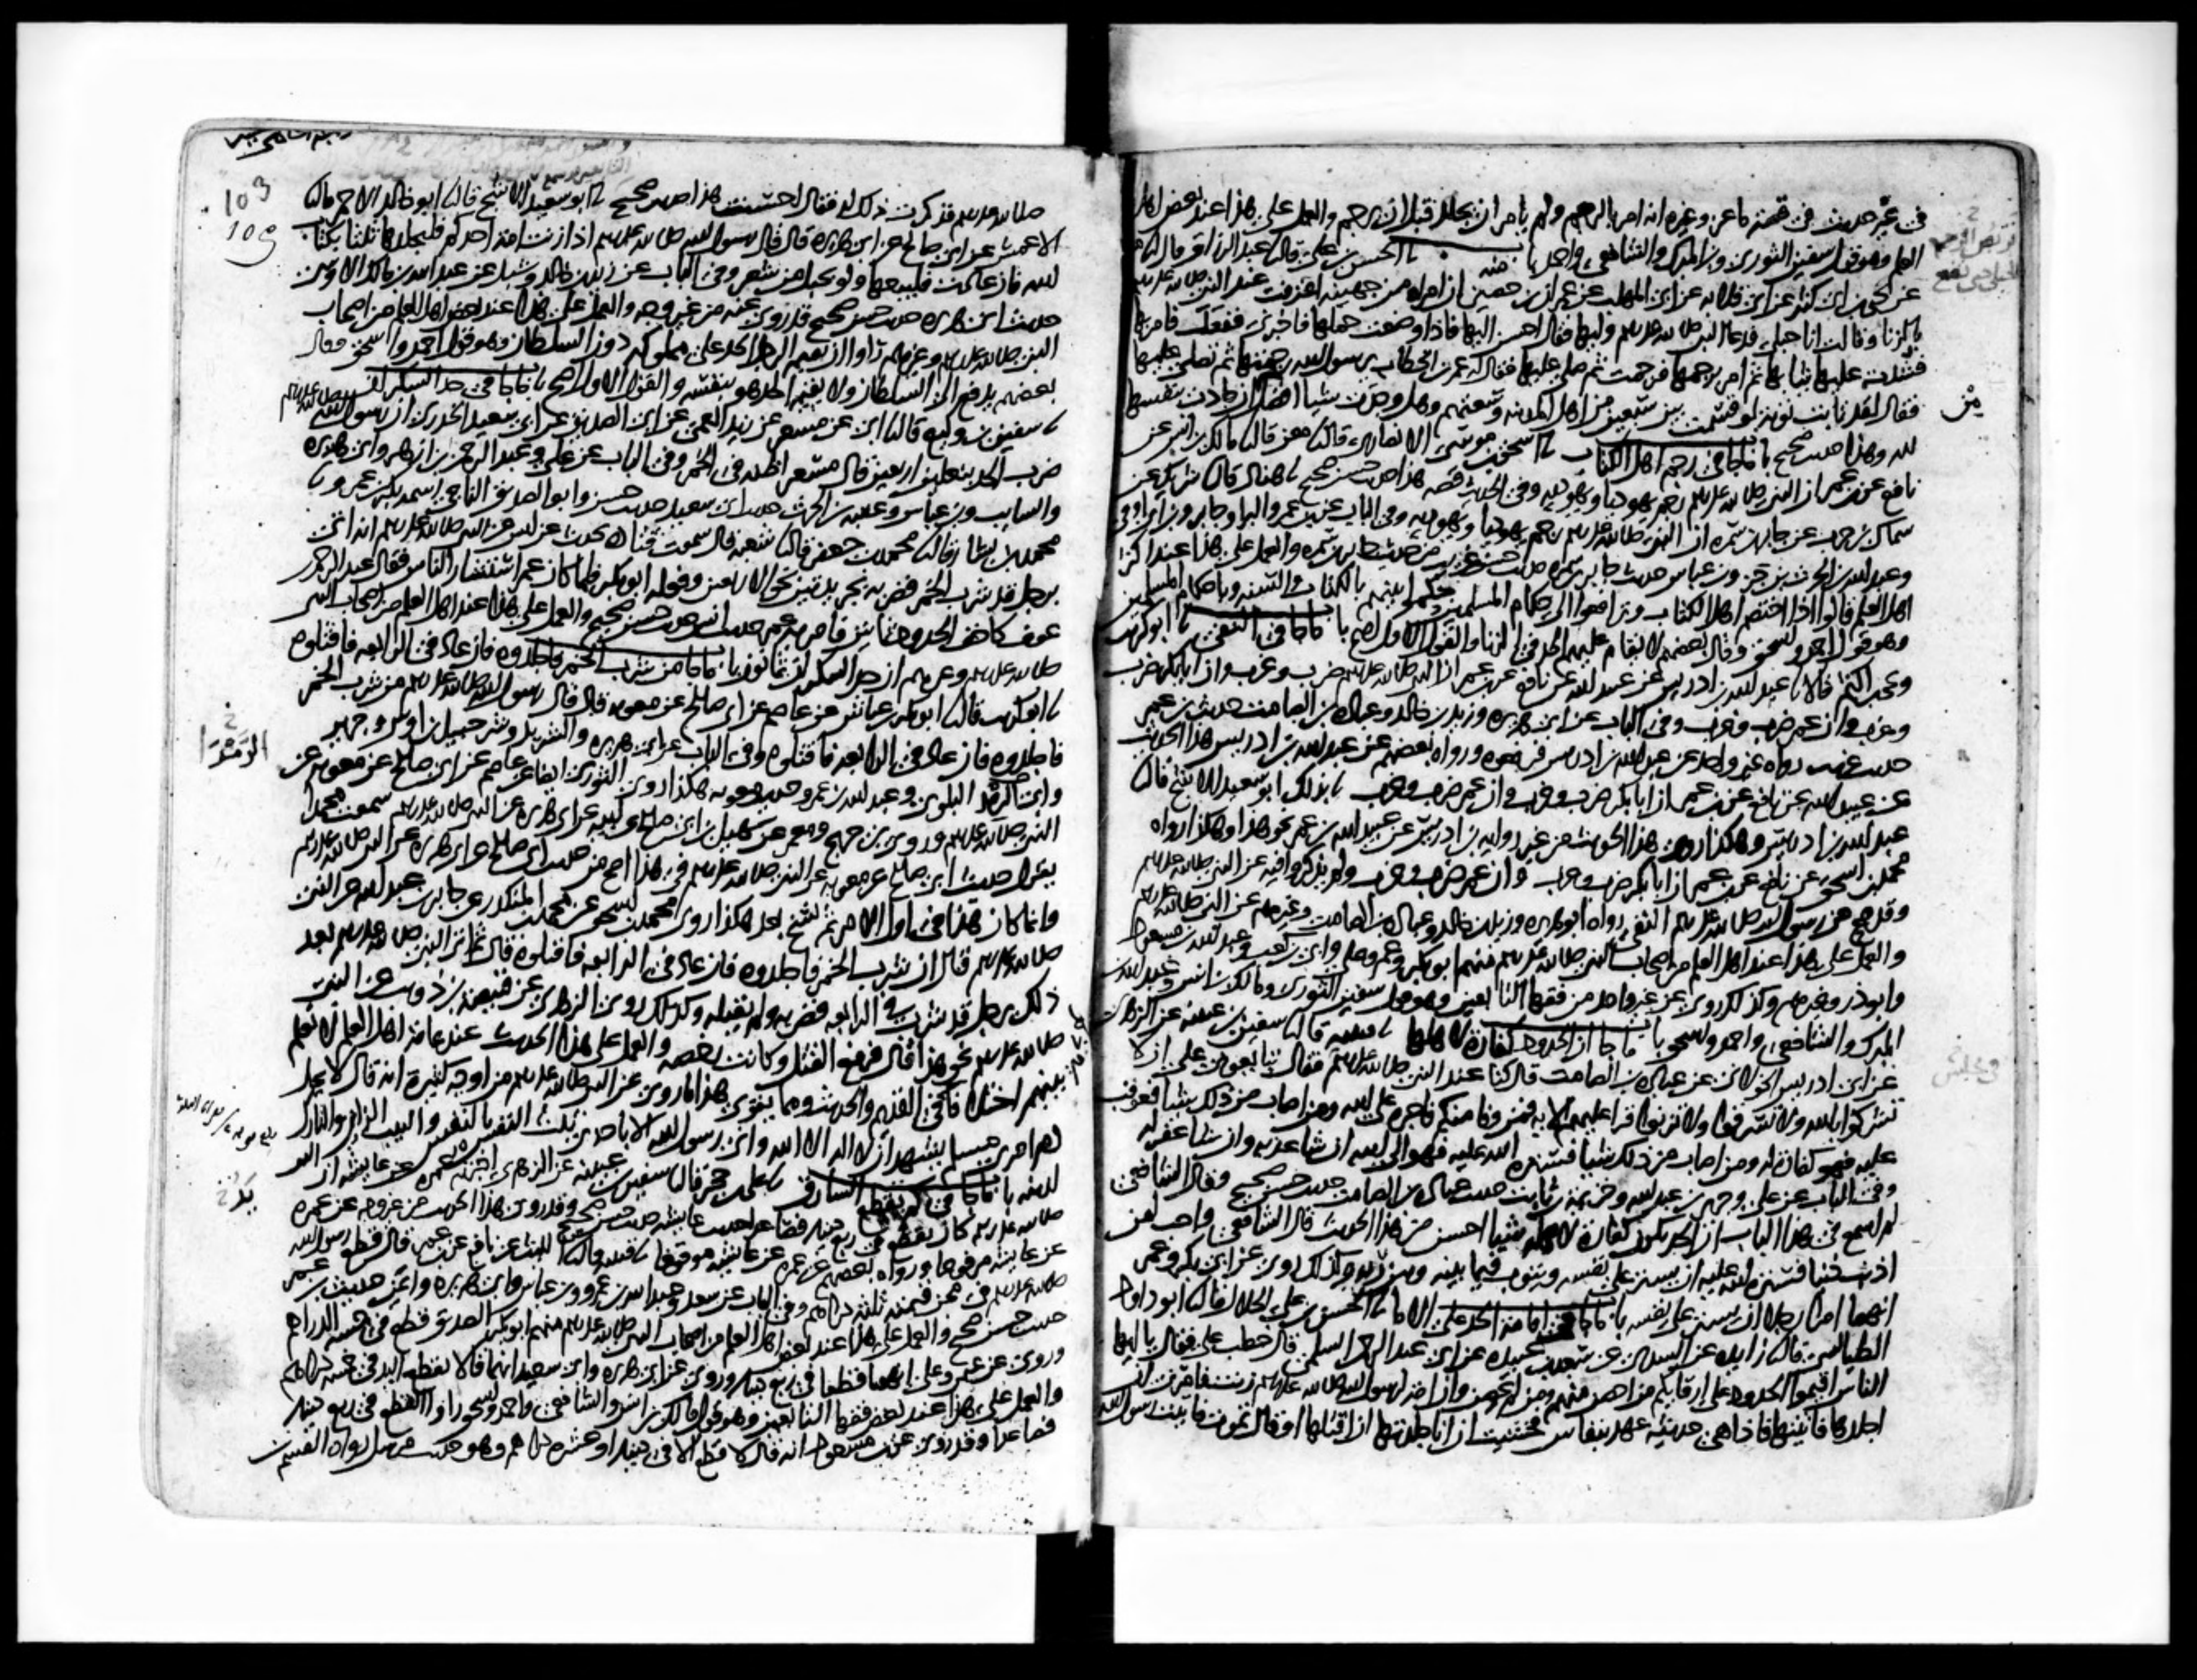 في غير حديث في قصة ماعز وغيره انه امر بالرجم ولم يامر ان يجلد قبل ان يرجم والعمل على هذا عند بعض اهل
العلم وهو قول سفين الثوري وبن المبرك والشافعي واحمد باب منه نا الحسن بن علي قال نا عبد الرزاق قال نا معمر
عن يحيى بن ابي كثير عن ابي قلابه عن ابي المهلب عن عمران بن حصين ان امراة من جهينة اعترفت عند النبي صلى الله عليه وسلم
بالزنا وقالت انا حبلى فدعا النبي صلى الله عليه وسلم وليها فقال احسن اليها فاذا وضعت حملها فاخبرني ففعل فامر بها
فشدت عليها ثيابها ثم امر برجمها فرجمت ثم صلى عليها فقال له عمر بن الخطاب يرسول الله رجمتها ثم تصلي عليها
فقال لقد تابت توبة لو قسمت بين سبعين من اهل المدينه وسعتهم وهل وجدت شيا افضل من ان جادت بنفسها
لله وهذا حديث صحيح باب ما جا في رجم اهل الكتاب نا اسحق بن موسى الانصاري قال نا معن قال نا مالك بن انس عن
نافع عن بن عمر ان النبي صلى الله عليه وسلم رجم يهوديا ويهوديه وفي الحديث قصه هذا حديث حسن صحيح نا هناد قال نا شريك عن
سماك بن حرب عن جابر بن سمره ان النبي صلى الله عليه وسلم رجم يهوديا ويهوديه وفي الباب عن بن عمر والبرا وجابر وبن ابي اوفى
وعبد الله بن الحرث بن جز وبن عباس حديث جابر بن سمره حديث حسن غريب من حديث جابر بن سمره والعمل على هذا عند اكثر
اهل العلم قالوا اذا اختصم اهل الكتاب وترافعوا الى حكام المسلمين حكموا بينهم بالكتاب والسنه وباحكام المسلمين
وهو قول احمد واسحق وقال بعضهم لا يقام عليهم الحد في الزنا والقول الاول اصح باب ما جا في النفي نا ابو كريب
ويحيى بن اكثم قالا نا عبد الله بن ادريس عن عبيد الله عن نافع عن بن عمر ان النبي صلى الله عليه وسلم ضرب وغرب وان ابا بكر ضرب
وغرب وان عمر ضرب وغرب وفي الباب عن ابي هريره وزيد بن خالد وعباده بن الصامت حديث بن عمر
حديث غريب رواه غير واحد عن عبد الله بن ادريس فرفعوه ورواه بعضهم عن عبد الله بن ادريس هذا الحديث
عن عبيد الله عن نافع عن بن عمر ان ابا بكر ضرب وغرب وان عمر ضرب وغرب نا بذلك ابو سعيد الاشج قال نا
عبد الله بن ادريس وهكذا روي هذا الحديث من غير رواية بن ادريس عن عبيد الله بن عمر نحو هذا وهكذا رواه
محمد بن اسحق عن نافع عن بن عمر ان ابا بكر ضرب وغرب وان عمر ضرب وغرب ولم يذكروا فيه عن النبي صلى الله عليه وسلم
وقد صح عن رسول الله صلى الله عليه وسلم النفي رواه ابو هريره وزيد بن خالد وعباده بن الصامت وغيرهم عن النبي صلى الله عليه وسلم
والعمل على هذا عند اهل العلم من اصحاب النبي صلى الله عليه وسلم منهم ابو بكر وعمر وعلي وابي بن كعب وعبد الله بن مسعود
وابو ذر وغيرهم وكذلك روي عن غير واحد من فقها التابعين وهو قول سفين الثوري ومالك بن انس وعبد الله بن
المبرك والشافعي واحمد واسحق باب ما جا ان الحدود كفارة لاهلها نا قتيبه قال نا سفين بن عيينه عن الزهري
عن ابي ادريس الخولاني عن عباده بن الصامت قال كنا عند النبي صلى الله عليه وسلم فقال تبايعوني على ان لا
تشركوا بالله ولا تسرقوا ولا تزنوا قرا عليهم الايه فمن وفا منكم فاجره على الله ومن اصاب من ذلك شيا فعوقب
عليه فهو كفارة له ومن اصاب من ذلك شيا فستره الله عليه فهو الى الله ان شا عذبه وان شا غفر له
وفي الباب عن علي وجرير بن عبد الله وخزيمة بن ثابت حديث عباده بن الصامت حديث حسن صحيح وقال الشافعي
لم اسمع في هذا الباب ان الحد يكون كفارة لاهله شيا احسن من هذا الحديث قال الشافعي واحب لمن
اذنب ذنبا فستره الله عليه ان يستر على نفسه ويتوب فيما بينه وبين ربه وكذلك روي عن ابي بكر وعمر
انهما امرا رجلا ان يستر على نفسه باب ما جا في اقامة الحد على الاما نا الحسن بن علي الخلال قال نا ابو داود
الطيالسي قال نا زايده عن السدي عن سعد بن عبيده عن ابي عبد الرحمن السلمي قال خطب علي فقال يا ايها
الناس اقيموا الحدود على ارقايكم من احصن منهم ومن لم يحصن وان امة لرسول الله صلى الله عليه وسلم زنت فامرني ان
اجلدها فاتيتها فاذا هي حديثة عهد بنفاس فخشيت ان انا جلدتها ان اقتلها او قال تموت فاتيت رسول الله
103
109
صلى الله عليه وسلم فذكرت ذلك له فقال احسنت هذا حديث صحيح نا ابو سعيد الاشج قال نا ابو خالد الاحمر قال نا
الاعمش عن ابي صالح عن ابي هريره قال قال رسول الله صلى الله عليه وسلم اذا زنت امة احدكم فليجلدها ثلثا بكتاب
الله فان عادت فليبعها ولو بحبل من شعر وفي الباب عن زيد بن خالد وشبل عن عبد الله بن مالك الاوسي
حديث ابي هريره حديث حسن صحيح قد روي عنه من غير وجه والعمل على هذا عند بعض اهل العلم من اصحاب
النبي صلى الله عليه وسلم وغيرهم راوا ان يقيم الرجل الحد على مملوكه دون السلطان وهو قول احمد واسحق وقال
بعضهم يدفع الى السلطان ولا يقيم الحد هو بنفسه والقول الاول اصح باب ما جا في حد السكران
نا سفين بن وكيع قال نا ابي عن مسعر عن زيد العمي عن ابي الصديق عن ابي سعيد الخدري ان رسول الله صلى الله عليه وسلم
ضرب الحد بنعلين اربعين قال مسعر اظنه في الخمر وفي الباب عن علي وعبد الرحمن بن ازهر وابي هريره
والسايب وبن عباس وعقبه بن الحرث حديث ابي سعيد حديث حسن وابو الصديق الناجي اسمه بكر بن عمرو نا
محمد بن بشار قال نا محمد بن جعفر قال نا شعبه قال سمعت قتاده يحدث عن انس عن النبي صلى الله عليه وسلم انه اتي
برجل قد شرب الخمر فضربه بجريدتين نحو الاربعين وفعله ابو بكر فلما كان عمر استشار الناس فقال عبد الرحمن بن
عوف كاخف الحدود ثمانين فامر به عمر حديث انس حديث حسن صحيح والعمل على هذا عند اهل العلم من اصحاب النبي
صلى الله عليه وسلم وغيرهم ان حد السكران ثمانون باب ما جا من شرب الخمر فاجلدوه فان عاد في الرابعه فاقتلوه
نا ابو كريب قال نا ابو بكر بن عياش عن عاصم عن ابي صالح عن معويه قال قال رسول الله صلى الله عليه وسلم من شرب الخمر
فاجلدوه فان عاد في الرابعه فاقتلوه وفي الباب عن ابي هريره والشريد وشرحبيل بن اوس وجرير
وابي الرمد البلوي وعبد الله بن عمرو حديث معويه هكذا روى الثوري ايضا عن عاصم عن ابي صالح عن معويه عن
النبي صلى الله عليه وسلم وروى بن جريج ومعمر عن سهيل بن ابي صالح عن ابيه عن ابي هريره عن النبي صلى الله عليه وسلم سمعت محمدا
يقول حديث ابي صالح عن معويه عن النبي صلى الله عليه وسلم في هذا اصح من حديث ابي صالح عن ابي هريره عن النبي صلى الله عليه وسلم
وانما كان هذا في اول الامر ثم نسخ بعد هكذا روى محمد بن اسحق عن محمد بن المنكدر عن جابر بن عبد الله عن النبي
صلى الله عليه وسلم قال ان شرب الخمر فاجلدوه فان عاد في الرابعه فاقتلوه قال ثم اتي النبي صلى الله عليه وسلم بعد
ذلك برجل قد شرب في الرابعه فضربه ولم يقتله وكذلك روى الزهري عن قبيصة بن ذويب عن النبي
صلى الله عليه وسلم نحو هذا قال فرفع القتل وكانت رخصه والعمل على هذا الحديث عند عامة اهل العلم لا نعلم
بينهم اختلافا في القديم والحديث ومما يقوي هذا ما روي عن النبي صلى الله عليه وسلم من اوجه كثيرة انه قال لا يحل
دم امرئ مسلم يشهد ان لا اله الا الله واني رسول الله الا باحدى ثلث النفس بالنفس والثيب الزاني والتارك
لدينه باب ما جا في كم يقطع السارق نا علي بن حجر قال نا سفين بن عيينه عن الزهري اخبرته عمره عن عايشه ان النبي
صلى الله عليه وسلم كان يقطع في ربع دينار فصاعدا حديث عايشه حديث حسن صحيح وقد روي هذا الحديث من غير وجه عن عمره
عن عايشه مرفوعا ورواه بعضهم عن عمره عن عايشه موقوفا نا قتيبه قال نا الليث عن نافع عن بن عمر قال قطع رسول الله
صلى الله عليه وسلم في مجن قيمته ثلثة دراهم وفي الباب عن سعد وعبد الله بن عمرو وبن عباس وابي هريره وايمن حديث بن عمر
حديث حسن صحيح والعمل على هذا عند بعض اهل العلم من اصحاب النبي صلى الله عليه وسلم منهم ابو بكر الصديق قطع في خمسة الدراهم
وروي عن عثمن وعلي انهما قطعا في ربع دينار وروي عن ابي هريره وابي سعيد انهما قالا تقطع اليد في خمسة دراهم
والعمل على هذا عند بعض فقها التابعين وهو قول مالك بن انس والشافعي واحمد واسحق راوا القطع في ربع دينار
فصاعدا وقد روي عن بن مسعود انه قال لا قطع الا في دينار او عشرة دراهم وهو حديث مرسل رواه القسم بن